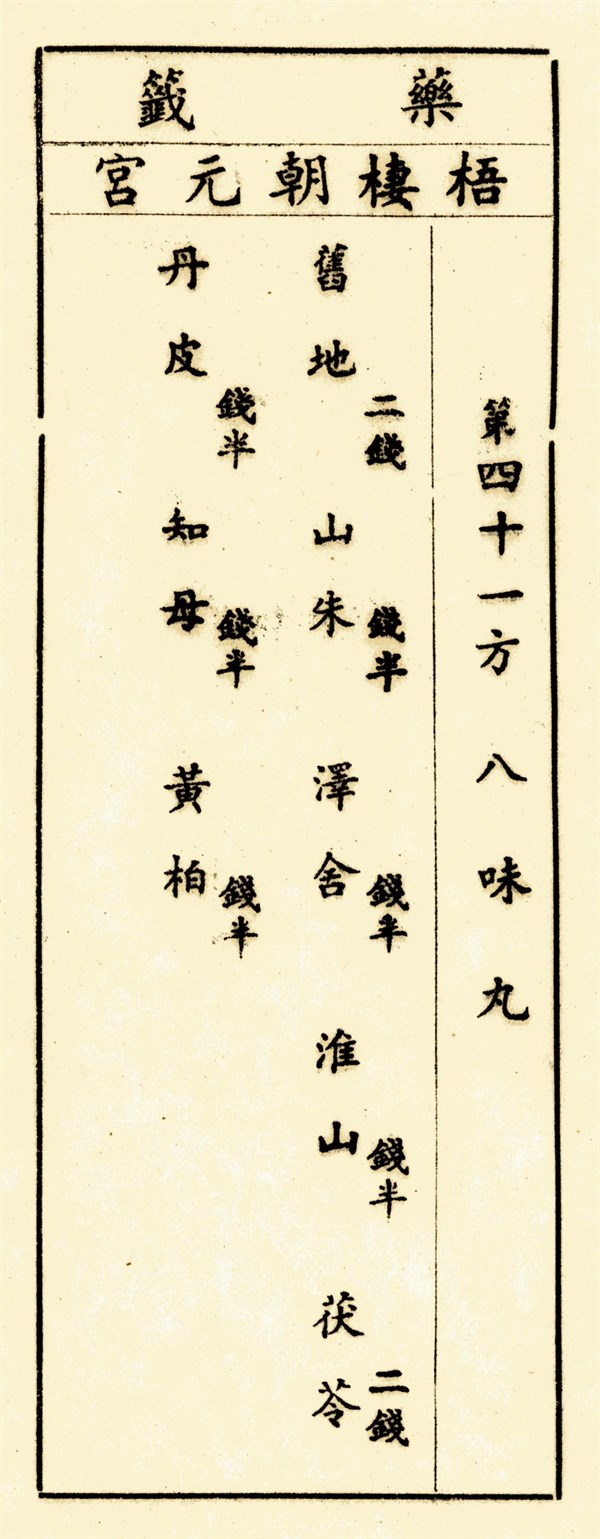 藥籤
梧棲朝元宮
第四十一方 八味丸
舊地 二錢 山朱 錢半 澤舍 錢半 淮山 錢半 茯苓 二錢
丹皮 錢半 知母 錢半 黃柏 錢半